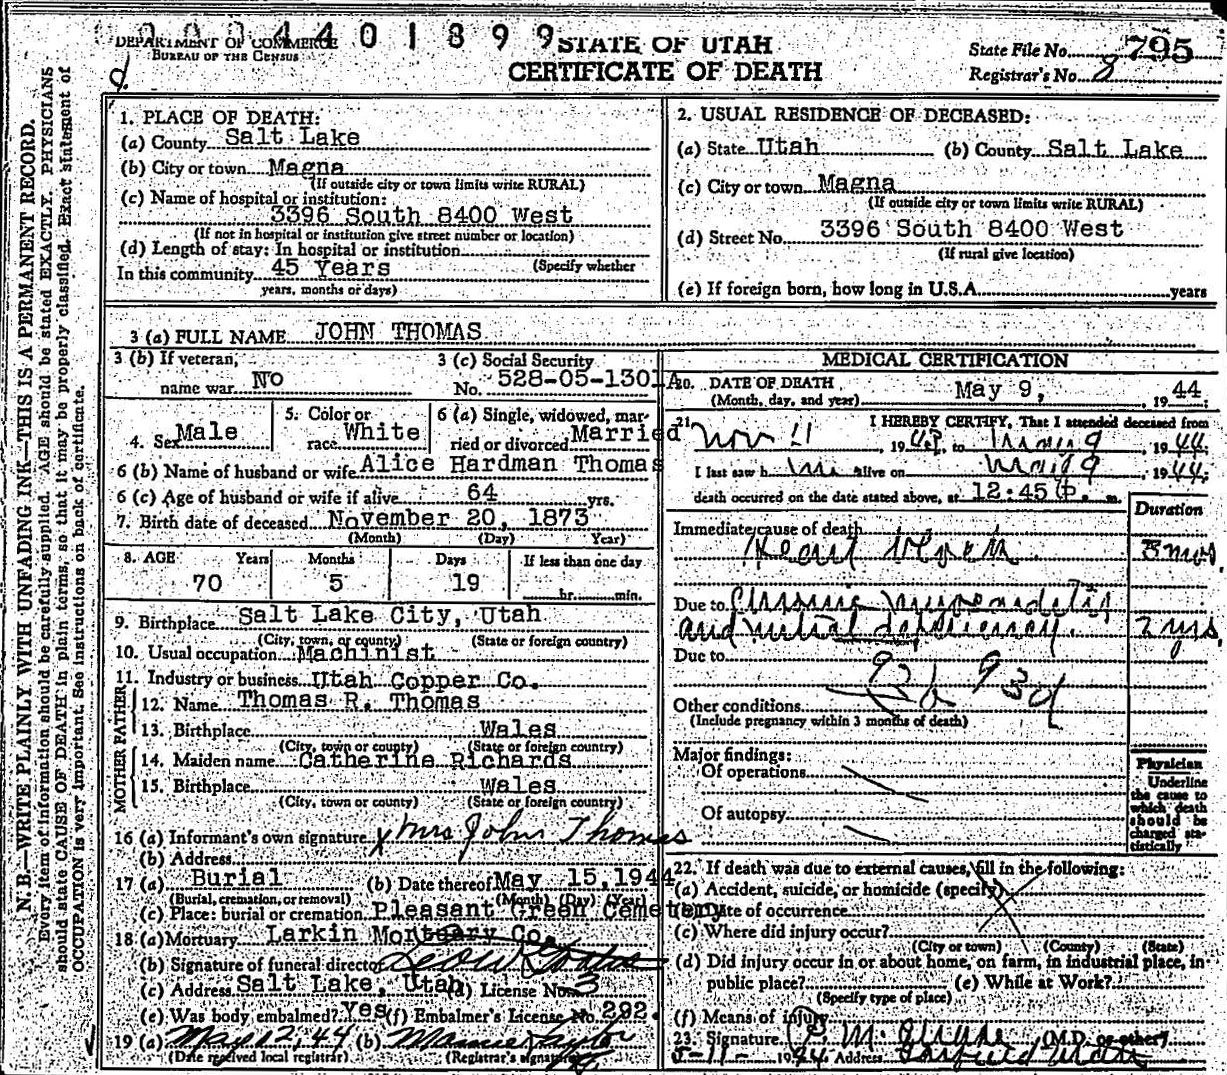 0004401899
DEPARTMENT OF COMMERCE
BUREAU OF THE CENSUS
STATE OF UTAH
CERTIFICATE OF DEATH
State File No. 795
Registrar's No. 8
N. B.—WRITE PLAINLY WITH UNFADING INK—THIS IS A PERMANENT RECORD.
Every item of information should be carefully supplied. AGE should be stated EXACTLY. PHYSICIANS
should state CAUSE OF DEATH in plain terms, so that it may be properly classified. Exact statement of
OCCUPATION is very important. See instructions on back of certificate.
1. PLACE OF DEATH:
(a) County Salt Lake
(b) City or town Magna
(If outside city or town limits write RURAL)
(c) Name of hospital or institution:
3396 South 8400 West
(If not in hospital or institution give street number or location)
(d) Length of stay: In hospital or institution
(Specify whether
In this community 45 Years
years, months or days)
2. USUAL RESIDENCE OF DECEASED:
(a) State Utah (b) County Salt Lake
(c) City or town Magna
(If outside city or town limits write RURAL)
(d) Street No. 3396 South 8400 West
(If rural give location)
(e) If foreign born, how long in U.S.A. years
3 (a) FULL NAME JOHN THOMAS
3 (b) If veteran,
name war No
3 (c) Social Security
No. 528-05-1301A
4. Sex Male
5. Color or
race White
6 (a) Single, widowed, mar-
ried or divorced Married
6 (b) Name of husband or wife Alice Hardman Thomas
6 (c) Age of husband or wife if alive 64 yrs.
7. Birth date of deceased November 20, 1873
(Month) (Day) Year)
8. AGE Years Months Days If less than one day
70 5 19 hr. min.
9. Birthplace Salt Lake City, Utah
(City, town, or county) (State or foreign country)
10. Usual occupation Machinist
11. Industry or business Utah Copper Co.
FATHER
12. Name Thomas R. Thomas
13. Birthplace Wales
(City, town or county) (State or foreign country)
MOTHER
14. Maiden name Catherine Richards
15. Birthplace Wales
(City, town or county) (State or foreign country)
16 (a) Informant's own signature x Mrs John Thomas
(b) Address
17 (a) Burial (b) Date thereof May 15, 1944
(Burial, cremation, or removal) (Month) (Day) (Year)
(c) Place: burial or cremation Pleasant Green Cemetery
18 (a) Mortuary Larkin Mortuary Co.
(b) Signature of funeral director
(c) Address Salt Lake, Utah (d) License No. 3
(e) Was body embalmed? Yes (f) Embalmer's License No. 292.
19 (a) May 12, 44 (b)
(Date received local registrar) (Registrar's signature)
MEDICAL CERTIFICATION
20. DATE OF DEATH May 9, 1944
(Month, day, and year)
21. I HEREBY CERTIFY, That I attended deceased from
Nov 11, 1943, to May 9, 1944;
I last saw him alive on May 9, 1944;
death occurred on the date stated above, at 12:45 P. m.
Duration
Immediate cause of death
Heart 3 mos.
Due to Chronic myocarditis
and mitral 2 yrs.
Due to
92b 93d
Other conditions
(Include pregnancy within 3 months of death)
Major findings:
Of operations
Of autopsy
Physician
Underline
the cause to
which death
should be
charged sta-
tistically
22. If death was due to external causes, fill in the following:
(a) Accident, suicide, or homicide (specify)
(b) Date of occurrence
(c) Where did injury occur?
(City or town) (County) (State)
(d) Did injury occur in or about home, on farm, in industrial place, in
public place? (e) While at Work?
(Specify type of place)
(f) Means of injury
23. Signature (M.D. or other)
5-11-1944 Address Garfield Utah